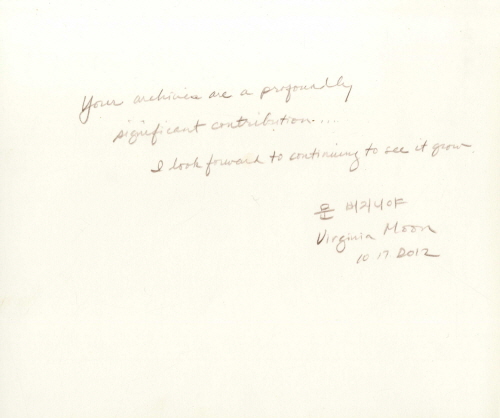 Your archives are a profoundly
significant contribution....
I look forward to continuing to see it grow
윤 버지니아
Virginia Moon
10.17.2012